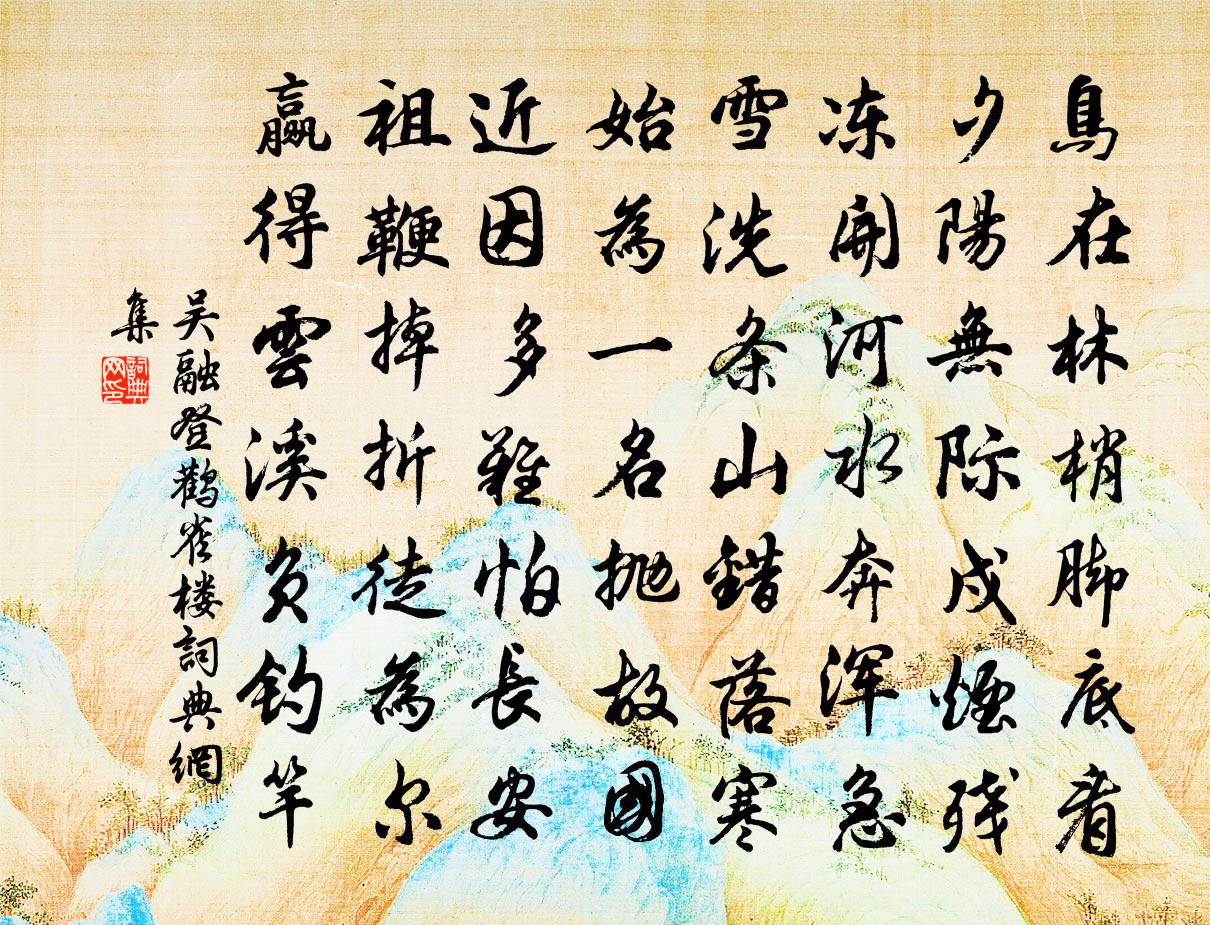 鳥在林梢脚底看
夕陽無际戍煙残
冻開河水奔浑急
雪洗条山錯落寒
始為一名抛故國
近因多難怕長安
祖鞭掉折徒為尔
贏得雲溪负钓竿
吴融登鹳雀楼詞典網
集
詞典網印